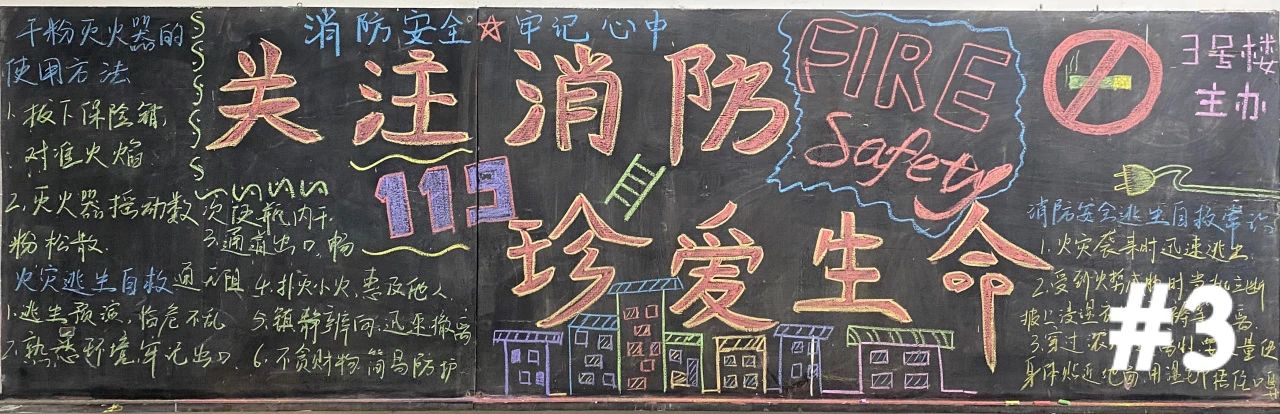 消防安全☆牢记心中
关注消防
119
珍爱生命
FIRE
Safety
3号楼
主办
干粉灭火器的
使用方法
1.拔下保险销,
对准火焰
2.灭火器摇动数次使瓶内干
粉松散
火灾逃生自救
1.逃生预演,临危不乱
2.熟悉环境,牢记出口
3.通道出口,畅
通无阻
4.扑灭小火,惠及他人
5.镇静辨向,迅速撤离
6.不贪财物,简易防护
消防安全逃生自救常识
1.火灾袭来时迅速逃生
2.受到火势威胁时当机立断
披上浸湿
3.穿过浓
量使
身体贴近地面,用湿
捂住口鼻
#3